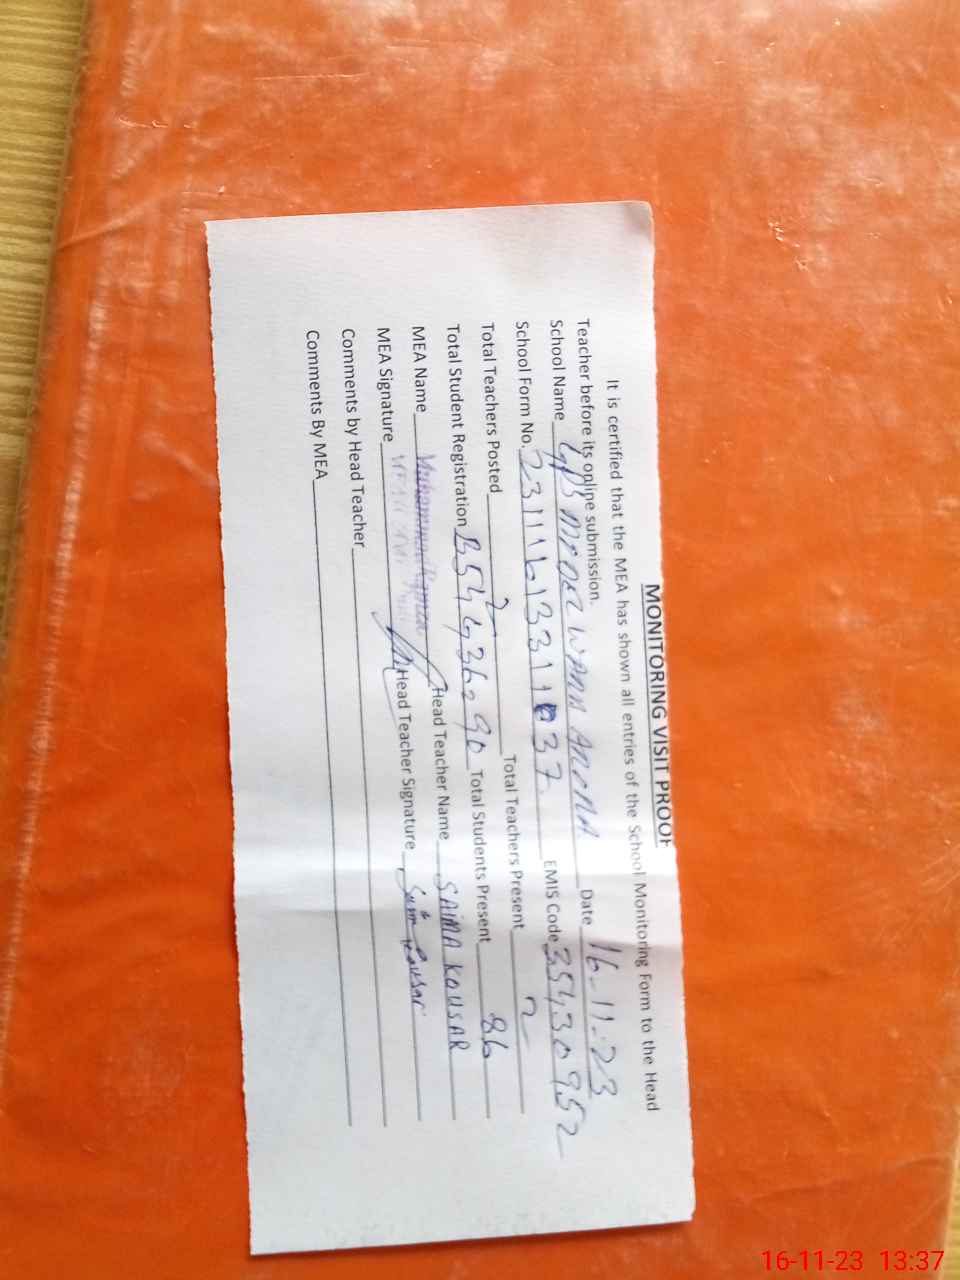 MONITORING VISIT PROOF
It is certified that the MEA has shown all entries of the School Monitoring Form to the Head
Teacher before its online submission.
School Name GPS Date 16-11-23
School Form No. EMIS Code 35430952
Total Teachers Posted 2 Total Teachers Present 2
Total Student Registration 90 Total Students Present 86
MEA Name Muhammad Head Teacher Name SAIMA KOUSAR
MEA Signature Head Teacher Signature Kousar
Comments by Head Teacher
Comments By MEA
16-11-23 13:37